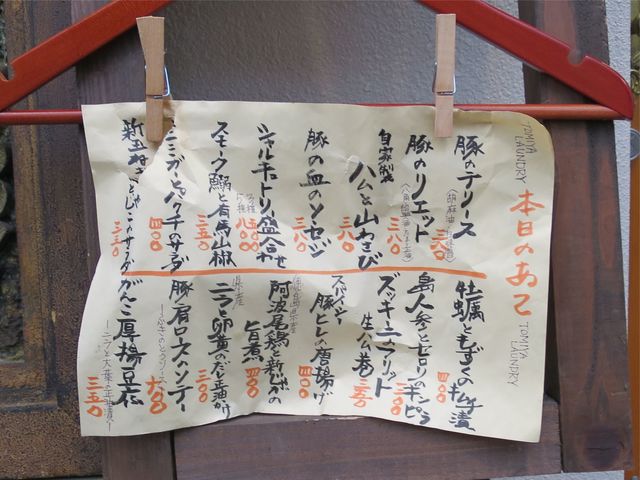 TOMIYA LAUNDRY
本日のあて
TOMIYA LAUNDRY
豚のテリーヌ
三八〇
豚のリエット
三八〇
自家製
ハムと山わさび
三八〇
豚の血のソーセージ
三八〇
シャルキュトリ盛合わせ
スモーク鰯と有馬山椒
三五〇
ミミガーとパクチーのサラダ
四〇〇
新玉ねぎとじゃこのサラダ
三五〇
牡蠣ともずくのキムチ漬
四〇〇
島人参とセロリのキンピラ
三〇〇
ズッキーニのフリット
生ハム巻
三五〇
スパイシー
豚ヒレの唐揚げ
四〇〇
阿波尾鶏と新じゃがの
旨煮
四〇〇
ニラと卵黄のだし正油がけ
三〇〇
豚肩ロースのソテー
六〇〇
がんこ厚揚豆腐
ーニラと大葉の正油漬ー
三五〇